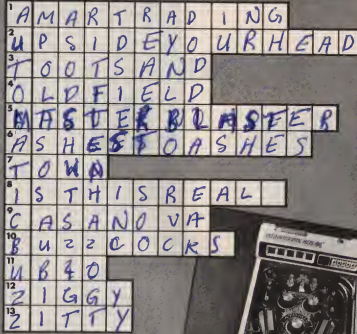 1 AMARTRADING
2 UPSIDEYOURHEAD
3 TOOTSAND
4 OLDFIELD
5 MASTERBLASTER
6 ASHESTOASHES
7 TOWN
8 ISTHISREAL
9 CASANOVA
10 BUZZCOCKS
11 UB40
12 ZIGGY
13 ZITTY